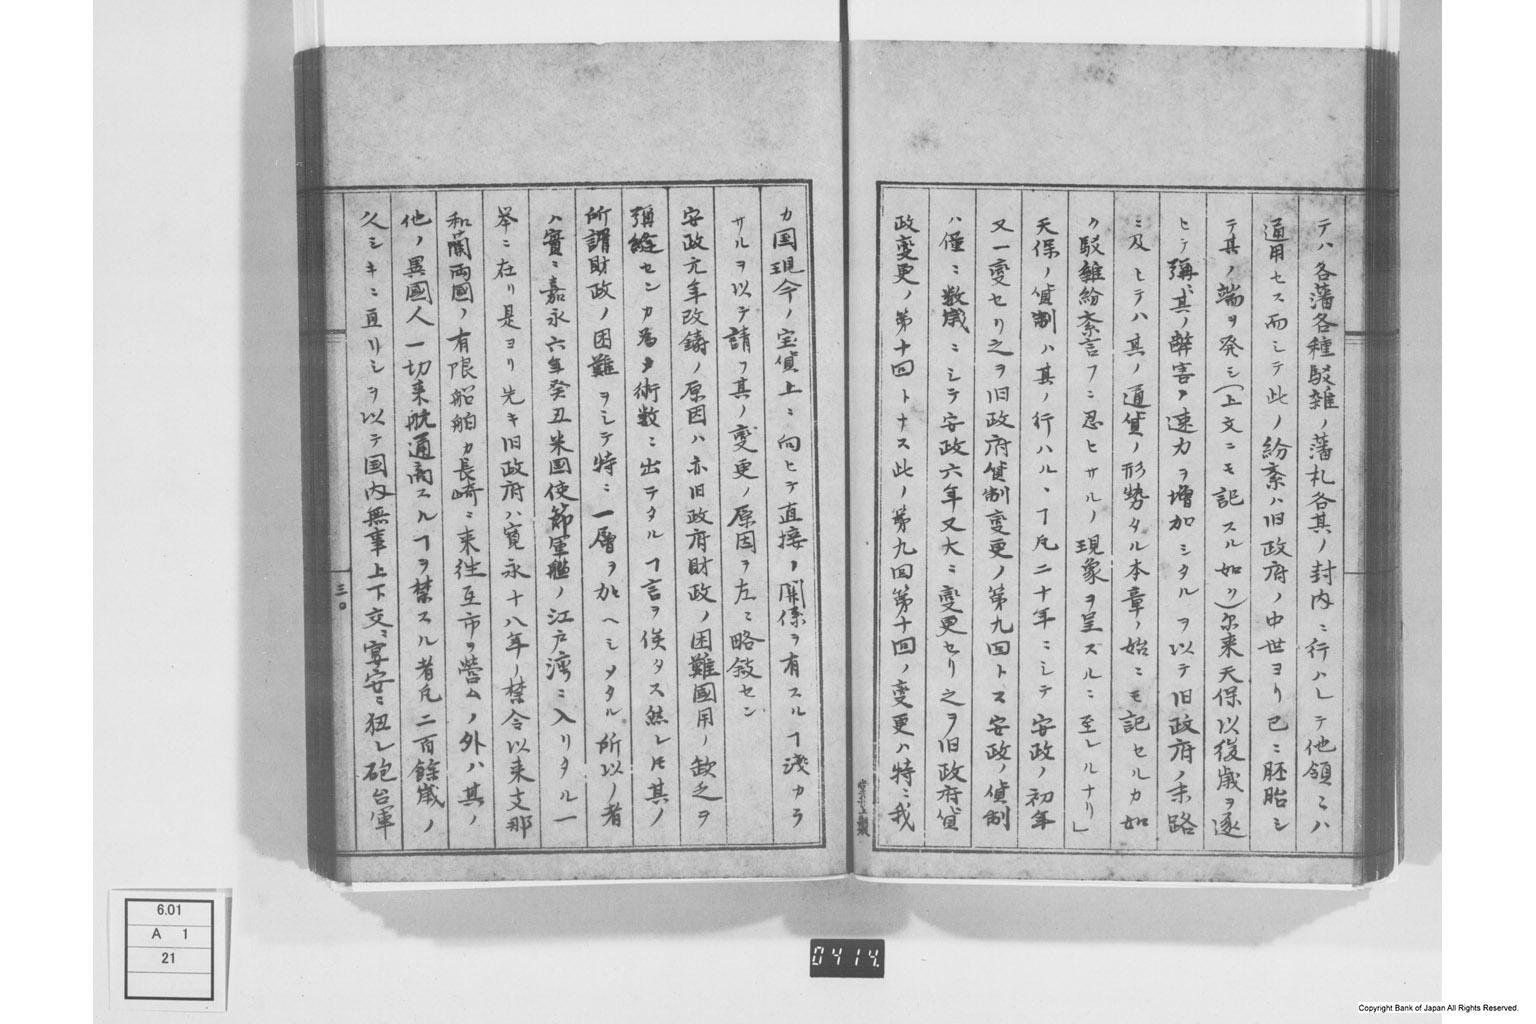 テハ各藩各種駁雑ノ藩札各其ノ封内ニ行ハレテ他領ニハ
通用セス而シテ此ノ紛紊ハ旧政府ノ中世ヨリ已ニ胚胎シ
テ其ノ端ヲ発シ(上文ニモ記スル如リ)尓来天保以後歳ヲ逐
ヒテ弥〻其ノ弊害ノ速力ヲ増加シタルヲ以テ旧政府ノ末路
ニ及ヒテハ其ノ通貨ノ形勢タル本章ノ始ニモ記セルカ如
ク駁雑紛紊言フニ忍ヒサルノ現象ヲ呈ズルニ至レルナリ」
天保ノ貨制ハ其ノ行ハルヽヿ凡二十年ニシテ安政ノ初年
又一変セリ之ヲ旧政府貨制変更ノ第九回トス安政ノ貨制
ハ僅ニ数歳ニシテ安政六年又大ニ変更セリ之ヲ旧政府貨
政変更ノ第十回トナス此ノ第九回第十回ノ変更ハ特ニ我
カ国現今ノ宝貨上ニ向ヒテ直接ノ関係ヲ有スルヿ浅カラ
サルヲ以テ請フ其ノ変更ノ原因ヲ左ニ略叙セン
安政元年改鋳ノ原因ハ亦旧政府財政ノ困難國用ノ欽乏ヲ
彌縫センカ為メ術数ニ出テタルヿ言ヲ俟タス然レ𪜈其ノ
所謂財政ノ困難ヲシテ特ニ一層ヲ加ヘシメタル所以ノ者
ハ實ニ嘉永六年癸丑米国使節軍艦ノ江戸湾ニ入リタル一
挙ニ在リ是ヨリ先キ旧政府ハ寛永十八年ノ禁令以来支那
和蘭両國ノ有限船舶カ長崎ニ来往互市ヲ營ムノ外ハ其ノ
他ノ異國人一切来航通商スルヿヲ禁スル者凡二百餘歳ノ
久シキニ亘リシヲ以テ国内無事上下交〻宴安ニ狃レ砲台軍
三〇
6.01
A 1
21
0414.
Copyright Bank of Japan All Rights Reserved.